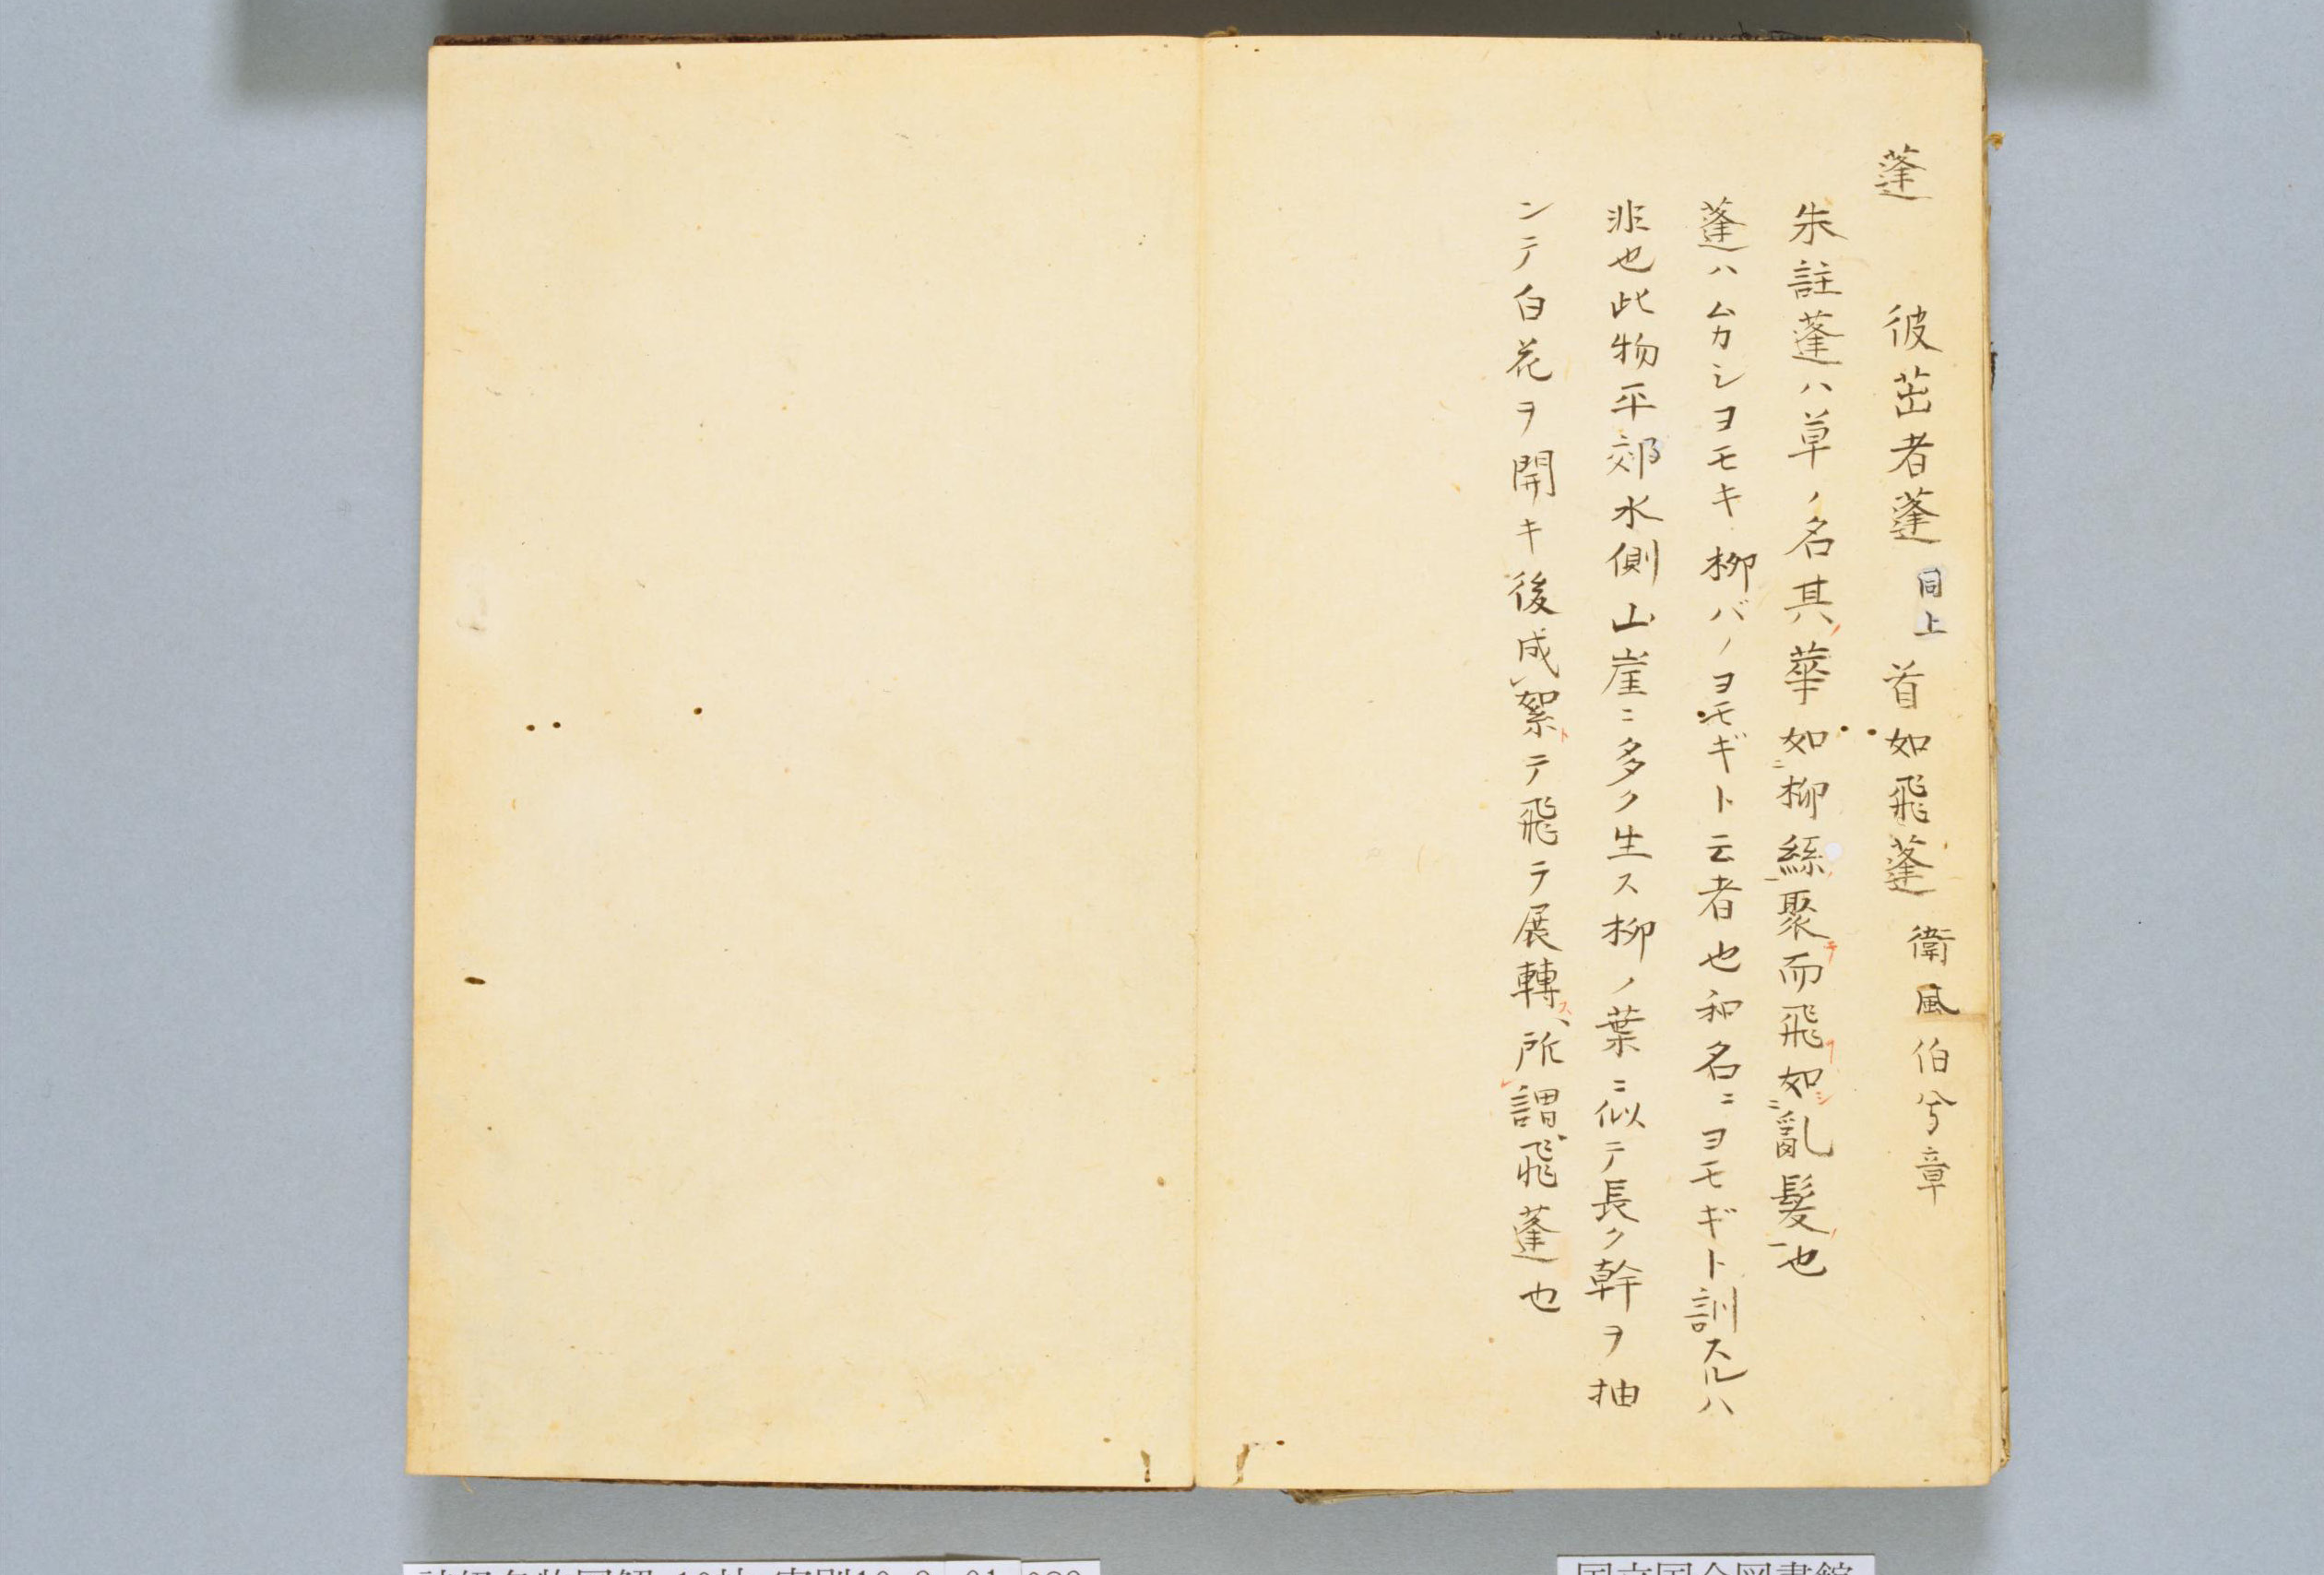 蓬　彼茁者蓬 同上 首如飛蓬 衛風伯兮章
朱註蓬ハ草ノ名其華如ニ柳絲一聚テ而飛ヿ如シニ亂髮一也
蓬ハムカシヨモキ柳バノヨモギト云者也和名ニヨモギト訓スルハ
非也此物平郊水側山崖ニ多ク生ス柳ノ葉ニ似テ長ク幹ヲ抽
ンテ白花ヲ開キ後成レ絮トテ飛テ展轉ス所レ謂飛蓬也
詩經名物圖解
国立国会図書館